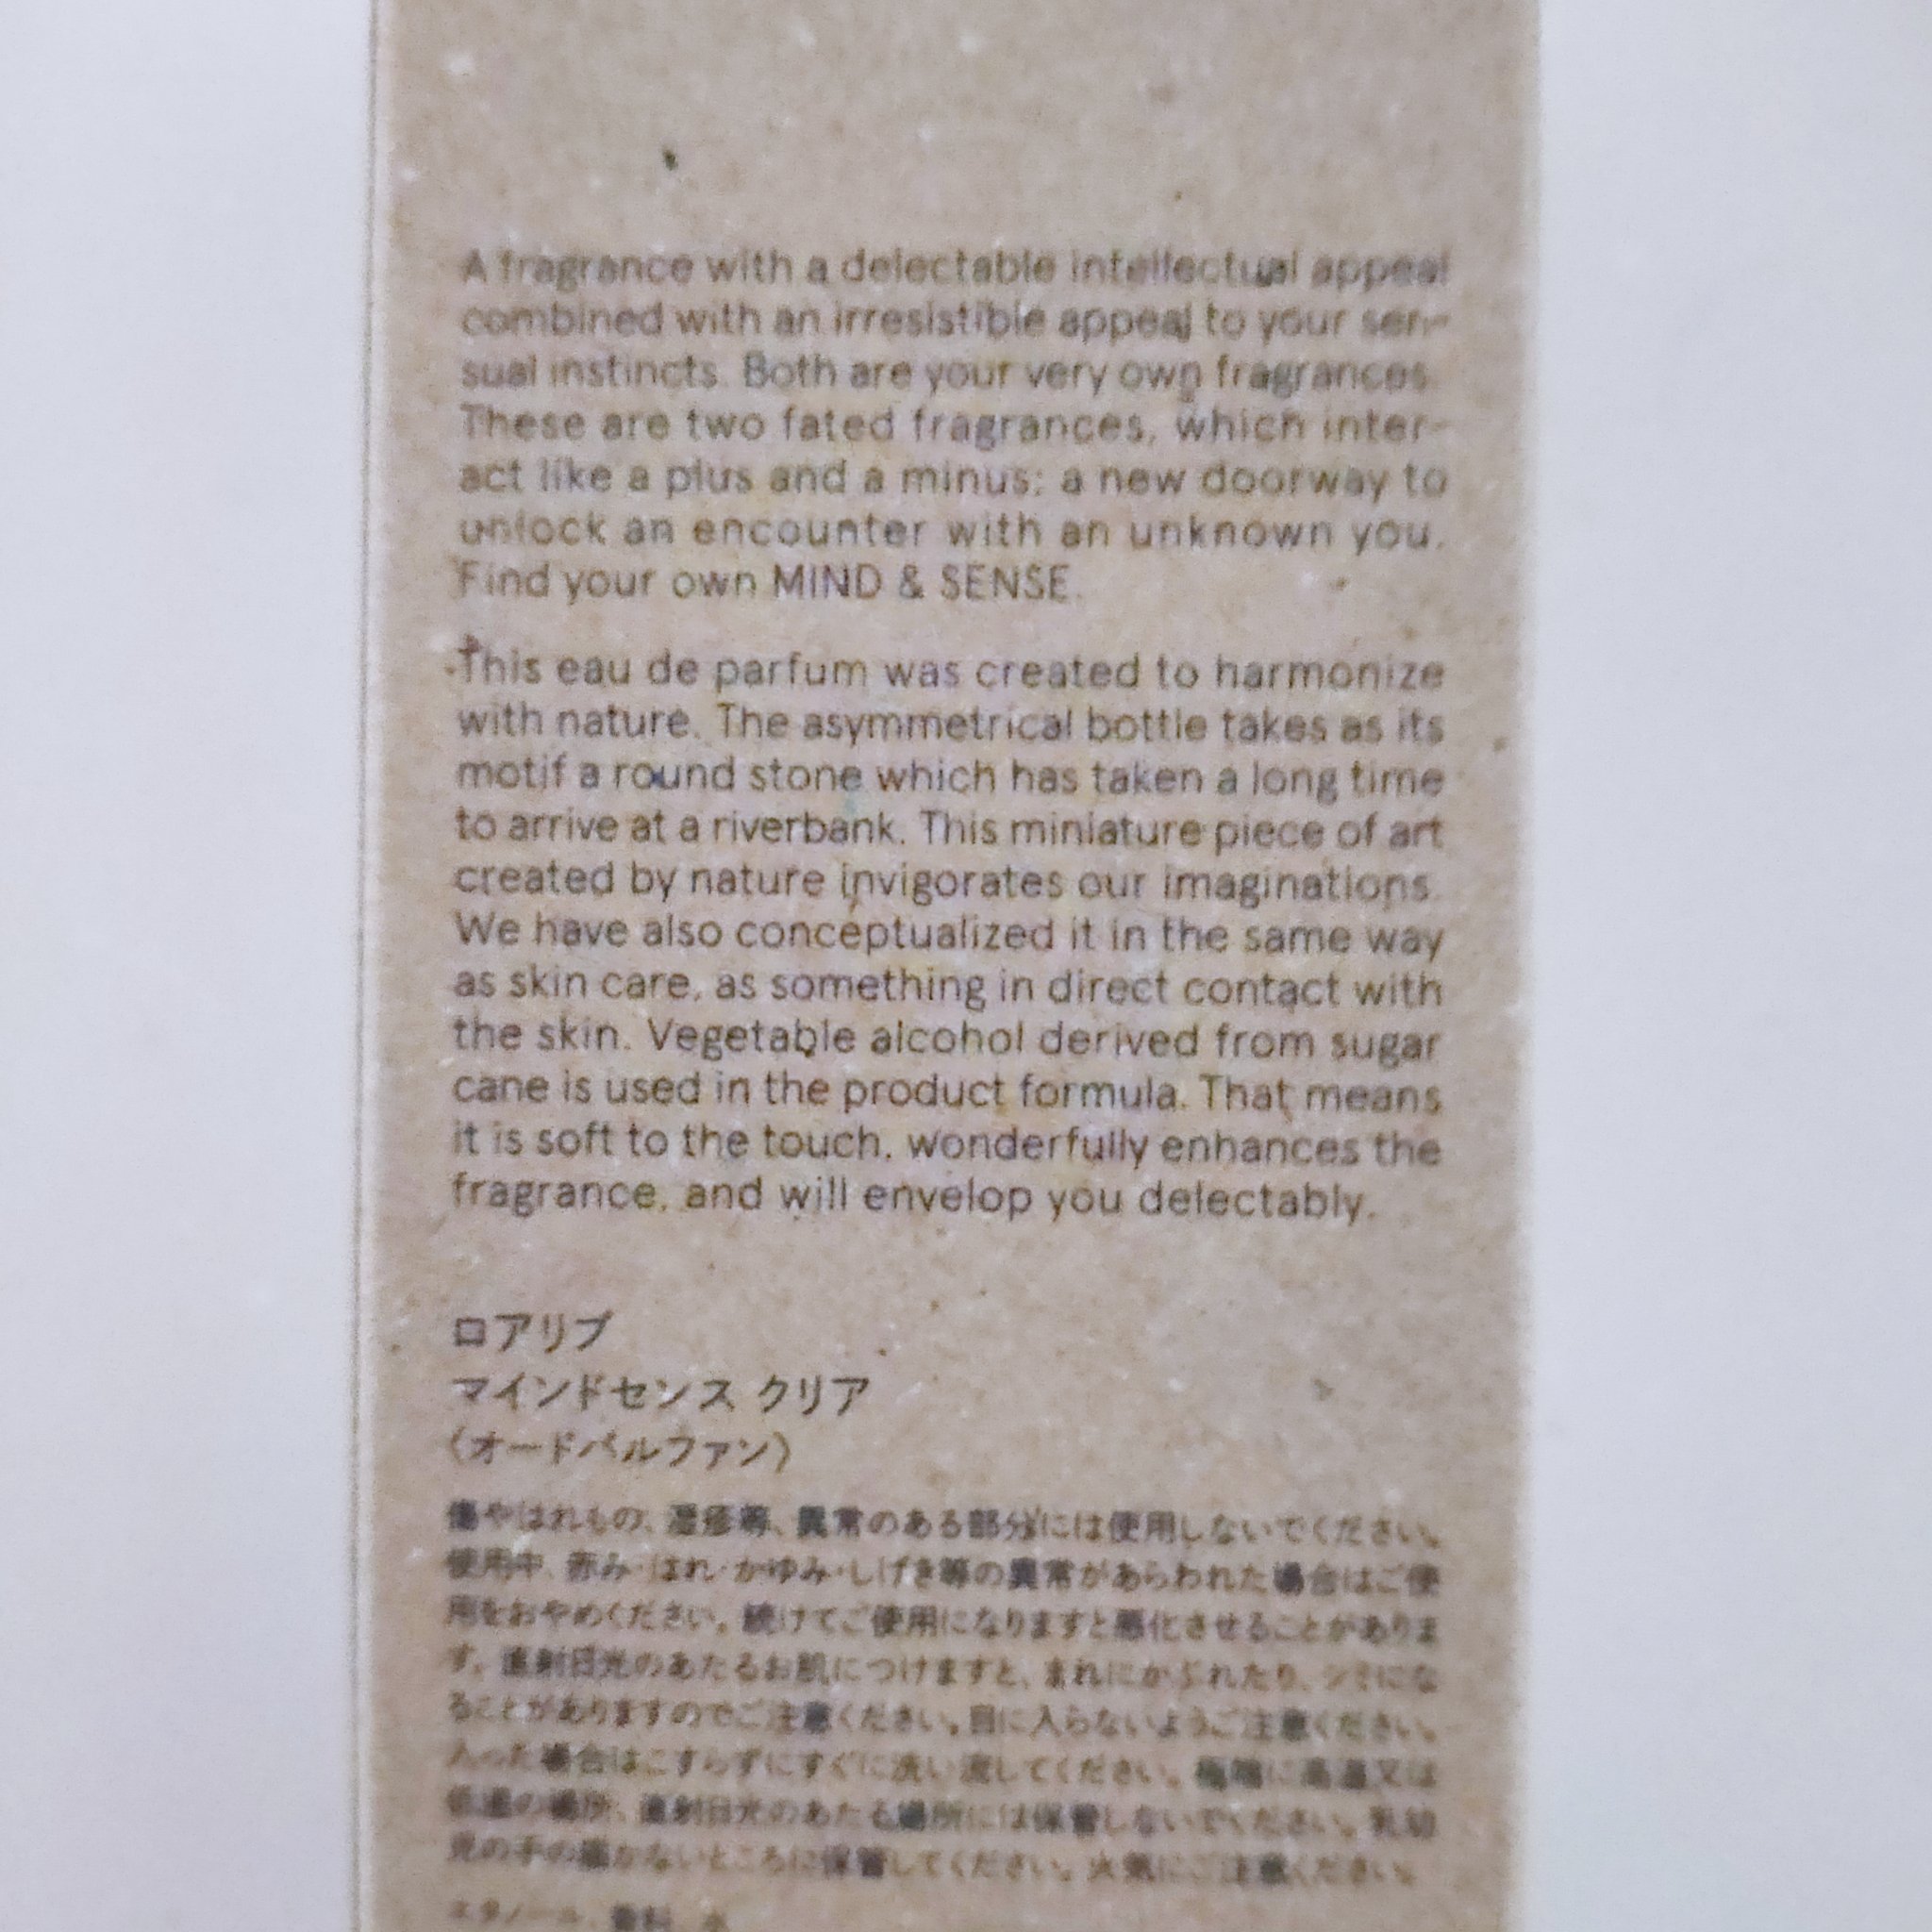 A fragrance with a delectable intellectual appeal
combined with an irresistible appeal to your sen-
sual instincts. Both are your very own fragrances.
These are two fated fragrances, which inter-
act like a plus and a minus; a new doorway to
unlock an encounter with an unknown you.
Find your own MIND & SENSE.
This eau de parfum was created to harmonize
with nature. The asymmetrical bottle takes as its
motif a round stone which has taken a long time
to arrive at a riverbank. This miniature piece of art
created by nature invigorates our imaginations.
We have also conceptualized it in the same way
as skin care, as something in direct contact with
the skin. Vegetable alcohol derived from sugar
cane is used in the product formula. That means
it is soft to the touch, wonderfully enhances the
fragrance, and will envelop you delectably.
ロアリブ
マインドセンス クリア
〈オードパルファン〉
傷やはれもの、湿疹等、異常のある部分には使用しないでください。
使用中、赤み・はれ・かゆみ・しげき等の異常があらわれた場合はご使
用をおやめください。続けてご使用になりますと悪化させることがありま
す。直射日光のあたるお肌につけますと、まれにかぶれたり、シミにな
ることがありますのでご注意ください。目に入らないようご注意ください。
入った場合はこすらずにすぐに洗い流してください。極端に高温又は
低温の場所、直射日光のあたる場所には保管しないでください。乳幼
児の手の届かないところに保管してください。火気にご注意ください。
エタノール、香料、水